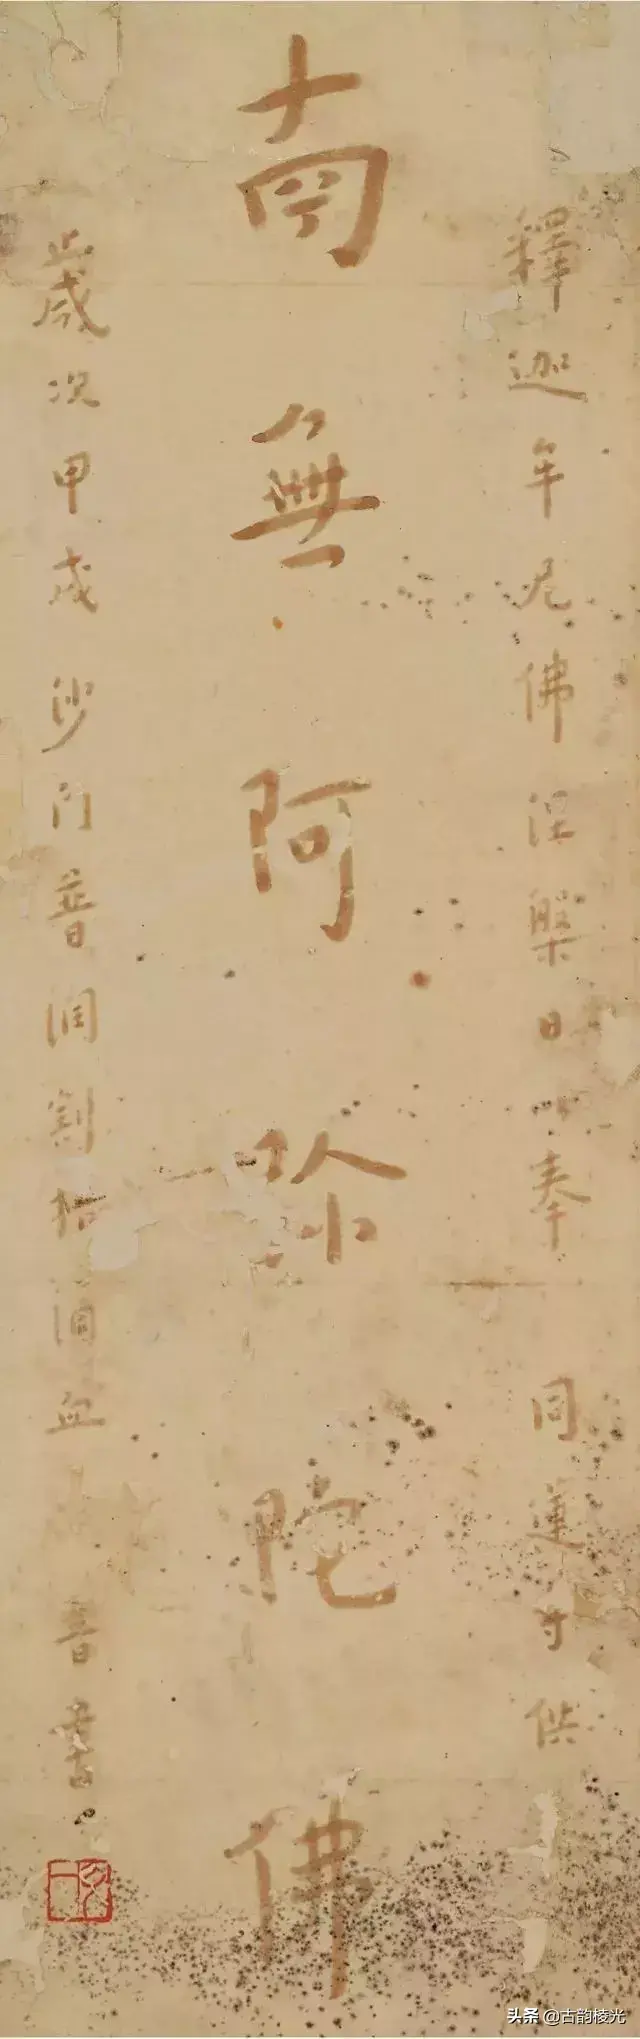 釋迦牟尼佛涅槃日奉 同蓮寺供
南無阿弥陀佛
歲次甲戌 沙門普潤割指血書
头条 @古韵棱光